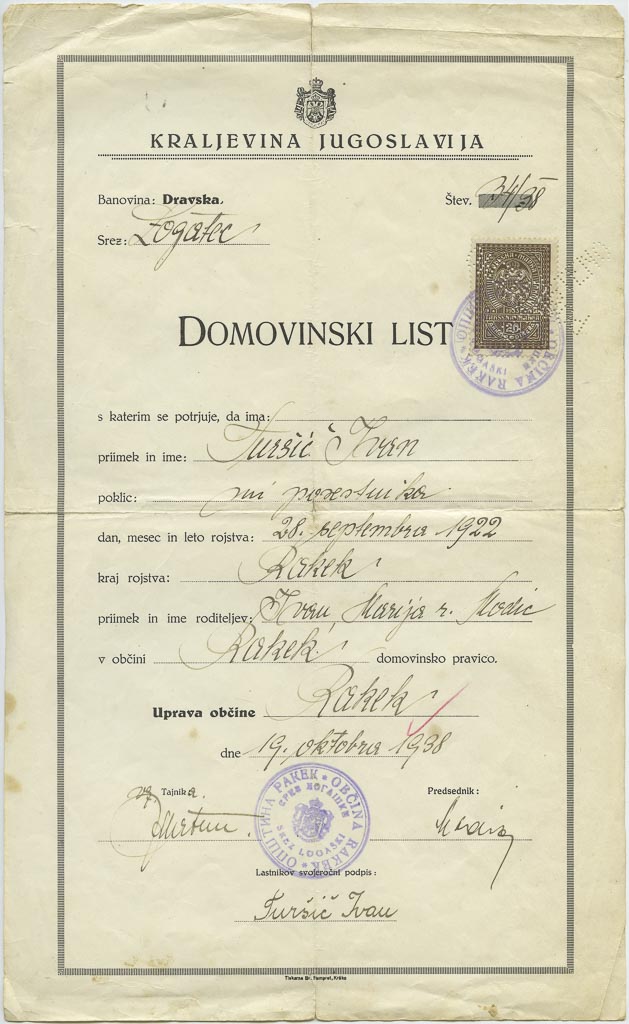 KRALJEVINA JUGOSLAVIJA
Banovina: Dravska.
Štev. 34/38
Srez: Logatec
DOMOVINSKI LIST
s katerim se potrjuje, da ima:
priimek in ime: Turšič Ivan
poklic: posestnika
dan, mesec in leto rojstva: 28. septembra 1922
kraj rojstva: Rakek
priimek in ime roditeljev: Ivan, Marija r. Modic
v občini Rakek, domovinsko pravico.
Uprava občine Rakek
dne 19. oktobra 1938
Tajnik
Predsednik:
ОПШТИНА РАКЕК * OBČINA RAKEK *
СРЕЗ ЛОГАШКИ
SREZ LOGAŠKI
Lastnikov svojeročni podpis:
Turšič Ivan